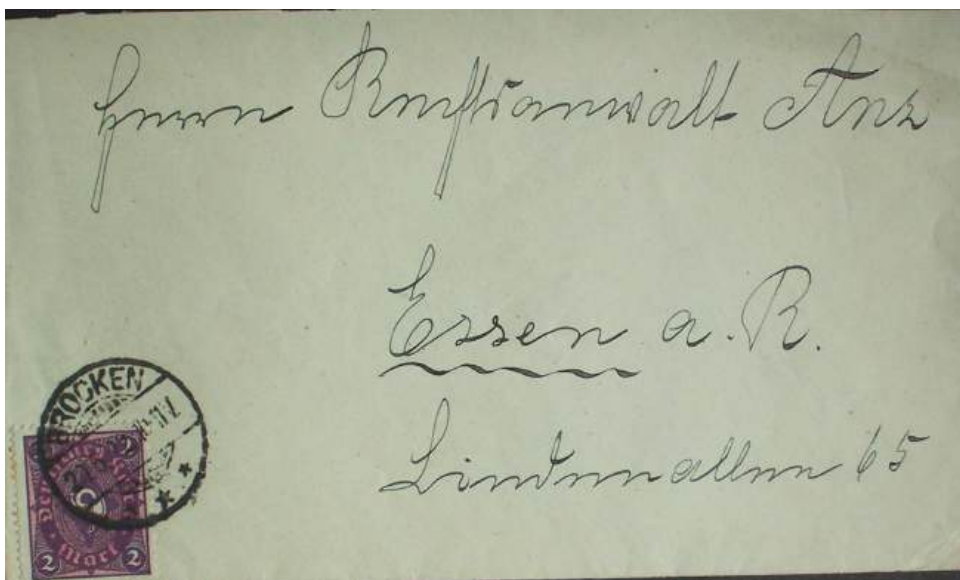 Herrn Rechtsanwalt Anz
Essen a. R.
Lindenallee 65
BROCKEN
Deutsches Reich
2 2
2 Mark 2